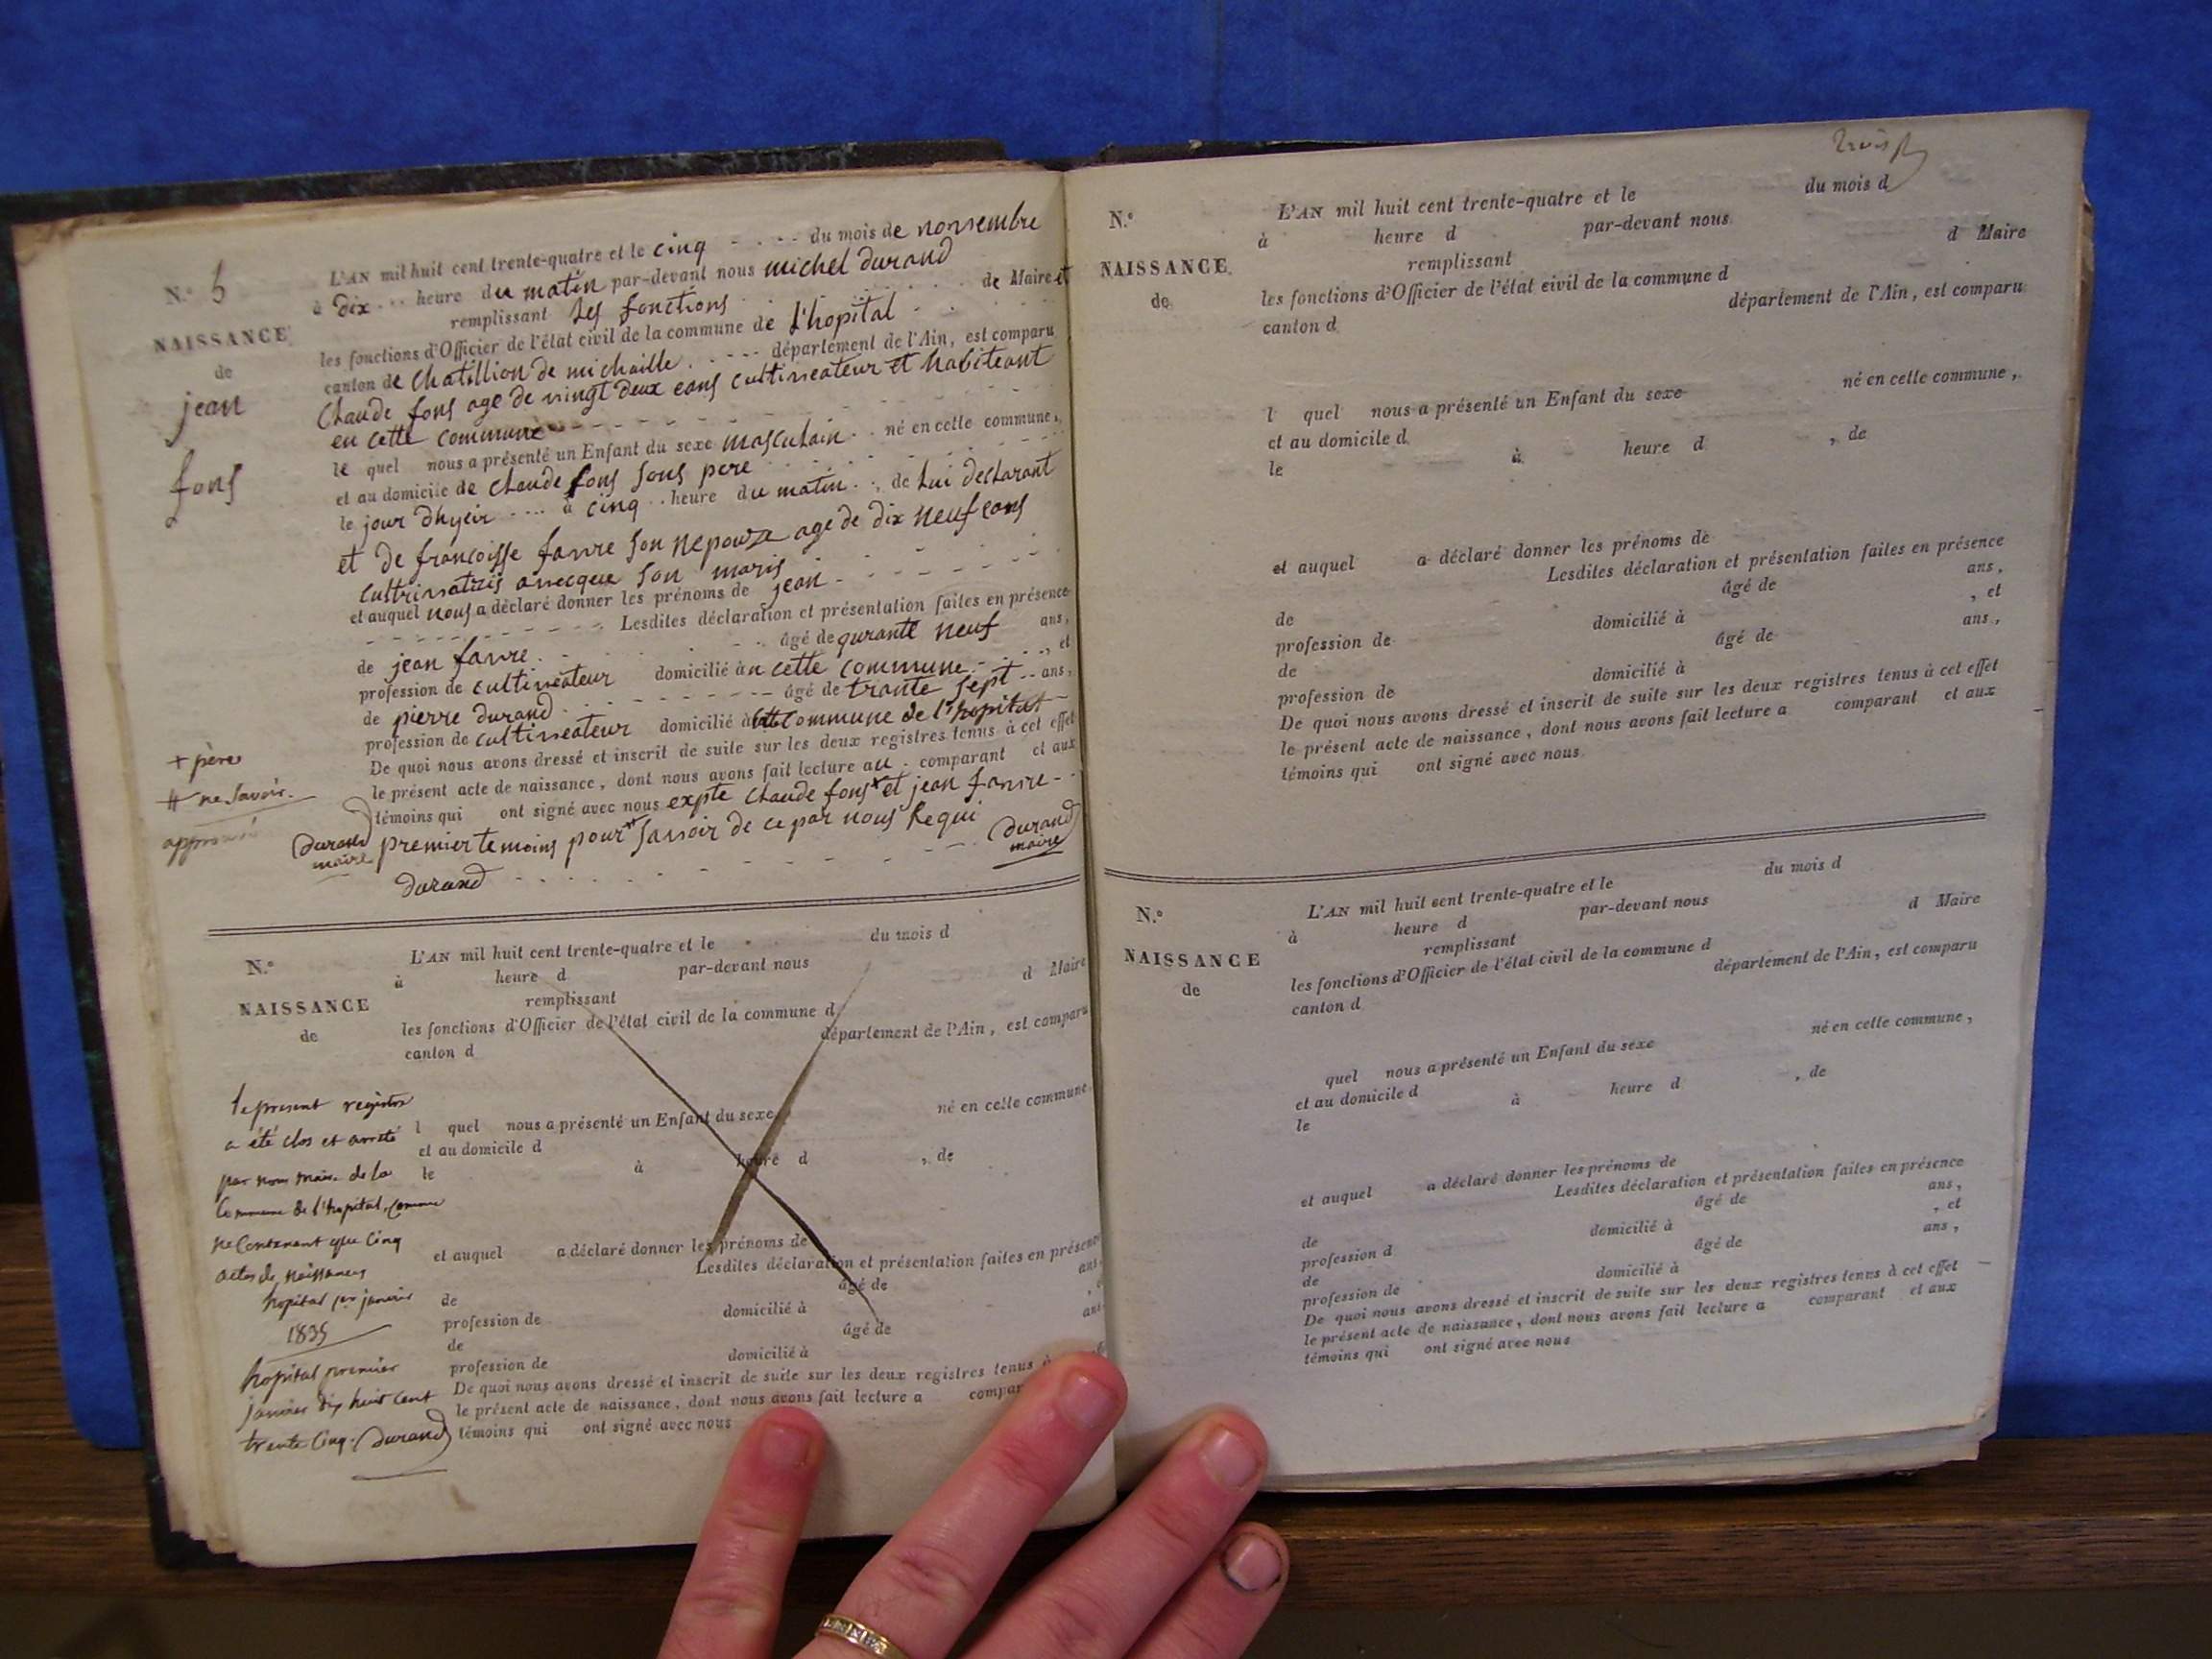 N.° 5
NAISSANCE
de
jean
fons
L'AN mil huit cent trente-quatre et le cinq du mois de novembre
à dix heure du matin par-devant nous michel durand
remplissant les fonctions de Maire et
les fonctions d'Officier de l'état civil de la commune de l'hopital
canton de Chatillion de michaille département de l'Ain, est comparu
Claude fons age de vingt deux eans cultiveateur et habiteant
en cette commune
le quel nous a présenté un Enfant du sexe masculain né en cette commune,
et au domicile de claude fons sons pere
le jour dhyeir à cinq heure du matin, de lui declarant
et de francoisse favre son nepouze age de dix neuf eans
cultrivatris avecque son maris
et auquel nous a déclaré donner les prénoms de jean
Lesdites déclaration et présentation faites en présence
de jean favre âgé de qurante neuf ans,
profession de cultiveateur domicilié àn cette commune, et
de pierre durand âgé de trante sept ans,
profession de cultiveateur domicilié à commune de l'hopital
De quoi nous avons dressé et inscrit de suite sur les deux registres tenus à cet effet
le présent acte de naissance, dont nous avons fait lecture au comparant et aux
témoins qui ont signé avec nous expte Claude fons + et jean favre
premier temoins pour # savoir de ce par nous Requi
durand
Durand
maire
Durand
maire
+ père
# ne savoir.
approuvé
N.°
NAISSANCE
de
L'AN mil huit cent trente-quatre et le du mois d
à heure d par-devant nous
remplissant d Maire
les fonctions d'Officier de l'état civil de la commune d
canton d département de l'Ain, est comparu
l quel nous a présenté un Enfant du sexe né en cette commune
et au domicile d
le à heure d , de
et auquel a déclaré donner les prénoms de
Lesdites déclaration et présentation faites en présence
de âgé de ans
profession de domicilié à
de âgé de ans
profession de domicilié à
De quoi nous avons dressé et inscrit de suite sur les deux registres tenus à
le présent acte de naissance, dont nous avons fait lecture a compar
témoins qui ont signé avec nous
le present registre
a été clos et arreté
par nous maire de la
Commune de l'hopital, comme
ne Contenant que Cinq
actes de naissances
hopital 1er janvier
1835
hopital premier
janvier dix huit cent
trente Cinq. Durand
N.°
NAISSANCE
de
L'AN mil huit cent trente-quatre et le du mois d
à heure d par-devant nous
remplissant d Maire
les fonctions d'Officier de l'état civil de la commune d
canton d département de l'Ain, est comparu
l quel nous a présenté un Enfant du sexe né en cette commune,
et au domicile d
le à heure d , de
et auquel a déclaré donner les prénoms de
Lesdites déclaration et présentation faites en présence
de âgé de ans,
profession de domicilié à , et
de âgé de ans,
profession de domicilié à
De quoi nous avons dressé et inscrit de suite sur les deux registres tenus à cet effet
le présent acte de naissance, dont nous avons fait lecture a comparant et aux
témoins qui ont signé avec nous
N.°
NAISSANCE
de
L'AN mil huit cent trente-quatre et le du mois d
à heure d par-devant nous
remplissant d Maire
les fonctions d'Officier de l'état civil de la commune d
canton d département de l'Ain, est comparu
quel nous a présenté un Enfant du sexe né en cette commune,
et au domicile d
le à heure d , de
et auquel a déclaré donner les prénoms de
Lesdites déclaration et présentation faites en présence
de âgé de ans,
profession d domicilié à , et
de âgé de ans,
profession de domicilié à
De quoi nous avons dressé et inscrit de suite sur les deux registres tenus à cet effet
le présent acte de naissance, dont nous avons fait lecture a comparant et aux
témoins qui ont signé avec nous